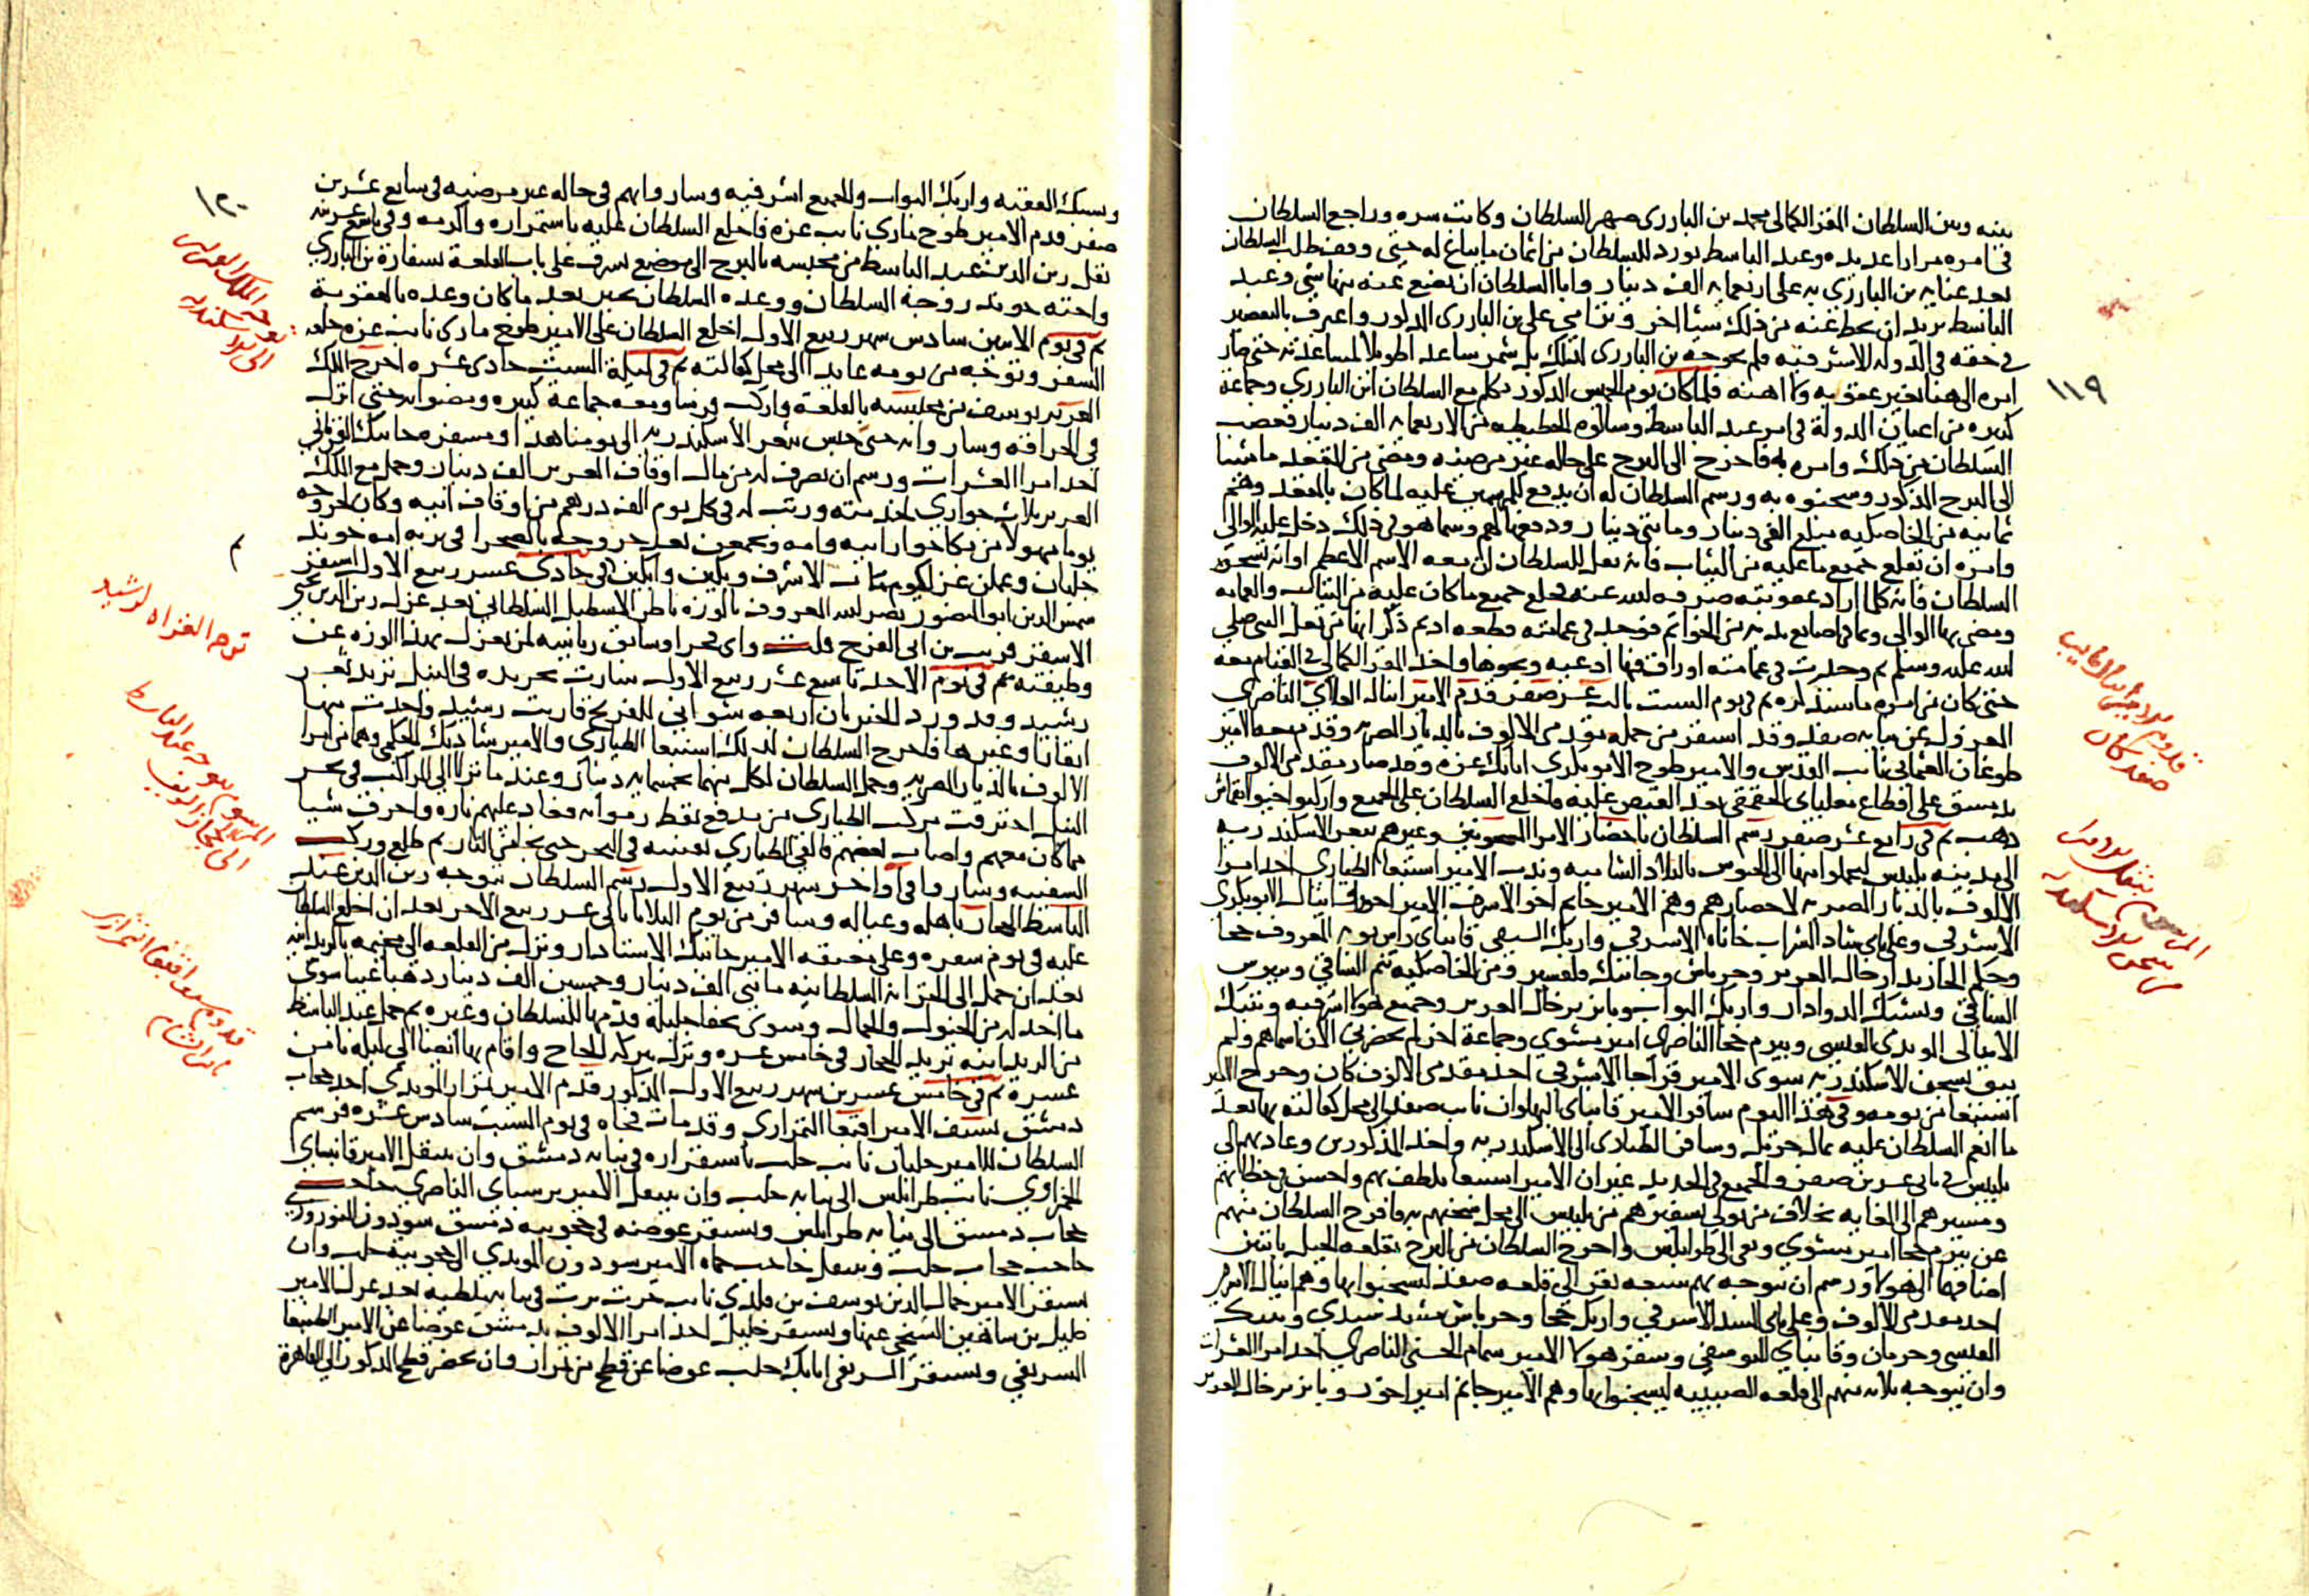 بينه وبين السلطان المقر الكمالى محمد بن البارزى صهر السلطان وكاتب سره وراجع السلطان
فى امره مرارا عديده وعبد الباسط يورد للسلطان من اثمان ما يباع له حتى وقف طلب السلطان
بعد عنايه بن البارزى به على اربعمايه الف دينار وابا السلطان ان يضع عنه منها شى وعبد
الباسط يريد ان يحط عنه من ذلك شيا اخر وترامى على بن البارزى المذكور واعترف بالتقصير
فى حقه فى الدوله الاشرفيه فلم يحوجه بن البارزى لذلك بل شمر ساعدا طويلا لمساعدته حتى صار
امره الى هنا بغير عقوبه ولا اهنه فلما كان يوم الخميس المذكور تكلم مع السلطان ابن البارزى وجماعة
كبيره من اعيان الدولة فى امر عبد الباسط وسالوه الحطيطه من الاربعمايه الف دينار فغضب
السلطان من ذلك وامر به فاخرج الى البرج على حاله غير مرضيه ومضى من المقعد ماشيا
الى البرج المذكور وسجنوه به ورسم السلطان له ان يدفع للمرسمين عليه لما كان بالمقعد وهم
ثمانيه من الخاصكيه مبلغ الفى دينار ومايتى دينار ودفعها لهم وبينما هو فى ذلك دخل عليه الوالى
وامره ان يقلع جميع ما عليه من الثياب فانه نقل للسلطان ان معه الاسم الاعظم او انه يسحر
السلطان فانه كلما اراد عقوبته صرفه الله عنه فخلع جميع ما كان عليه من الثياب والعمامه
ومضى بها الوالى وبما فى اصابع يديه من الخواتم فوجد فى عمامته قطعه اديم ذكر انها من نعل النبى صلى
الله عليه وسلم ثم وجدت فى عمامته اوراق فيها ادعيه ونحوها واخذ المقر الكمالى فى القيام معه
حتى كان من امره ما سنذكره ثم فى يوم السبت ثالث عشر صفر قدم الامير اينال العلاى الناصرى
المعزول عن نيابه صفد وقد استقر من جمله مقدمى الالوف بالديار المصريه وقدم معه الامير
طوغان العثمانى نايب القدس والامير طوخ الابوبكرى اتابك غزه وقد صار مقدمى الالوف
بدمشق على اقطاع مغلباى الجقمقى بعد القبض عليه فاخلع السلطان على الجميع واركبوا خيولا بقماش
ذهب ثم فى رابع عشر صفر رسم السلطان باحضار الامرا المسجونين وغيرهم بثغر الاسكندريه
الى مدينه بلبيس ليحملوا منها الى الحبوس بالبلاد الشاميه وندب الامير اسنبغا الطيارى احد امرا
الالوف بالديار المصريه لاحضارهم وهم الامير جانم اخو الاشرف الامير اخور واينال الابوبكرى
الاشرفى وعلى باى شاد الشراب خاناه الاشرفى وازبك السيفى قانباى راس نوبه المعروف جحا
وجكم الخازندار خال العزيز وجرباش وجانبك قلقسيز ومن الخاصكيه تنم الساقى وبيبرس
الساقى ويشبك الدوادار وازبك البواب وبايزير خال العزيز وجميع هولا اشرفيه وتنبك
الاينالى المويدى الفيسى وبيرم خجا الناصرى امير مشوى وجماعة اخر لم يحضرنى الان اسماهم ولم
يبق بسجن الاسكندريه سوى الامير قراجا الاشرفى احد مقدمى الالوف كان وخرج الامير
اسنبغا من يومه وفى هذا اليوم سافر الامير قانباى البهلوان نايب صفد الى محل كفالته بها بعد
ما انعم السلطان عليه بمال جزيل وسافر الطيارى الى الاسكندريه واخذ المذكورين وعاد بهم الى
بلبيس فى ثانى عشرين صفر والجميع فى الحديد غير ان الامير اسنبغا تلطف بهم واحسن فى خطابهم
ومسيرهم الى الغايه بخلاف من تولى تسفيرهم من بلبيس الى محل سجنهم به فافرج السلطان منهم
عن بيرم خجا امير مشوى ونفى الى طرابلس واخرج السلطان من البرج بقلعه الجبل باثنين
اضافهما الى هولا ورسم ان يتوجه منهم سبعه نفر الى قلعه صفد ليسجنوا بها وهم اينال الاشرفى
احد مقدمى الالوف وعلى باى السيد الاشرفى وازبك جحا وجرباش مشد سيدى وتنبك
الفيسى وحزمان وقانباى اليوسفى وسفر هولا الامير سمام الحسنى الناصرى احد امرا العشرات
وان يتوجه ثلاثه منهم الى قلعه الصبيبه ليسجنوا بها وهم الامير جانم امير اخور وبايزير خال العزيز
١١٩
قدوم اينال نايب
صفد كان
المرسوم بنقل الامرا
من سجن الاسكندريه
ويشبك الفقيه وازبك البواب والجميع اشرفيه وسار وابهم فى حاله غير مرضيه فى سابع عشرين
صفر قدم الامير طوخ مازى نايب غزه فاخلع السلطان عليه باستمراره واكرمه وفى تاسع عشرينه
نقل زين الدين عبد الباسط من محبسه بالبرج الى موضع يشرف على باب القلعة بسفارة بن البارزى
واخته خوند زوجة السلطان ووعده السلطان بخير بعد ما كان وعده بالعقوبة
ثم فى يوم الاثنين سادس شهر ربيع الاول اخلع السلطان على الامير طوخ مازى نايب غزه خلعه
السفر وتوجه من يومه عايدا الى محل كفالته ثم فى ليلة السبت حادى عشره اخرج الملك
العزيز يوسف من محبسه بالقلعة واركب فرسا ومعه جماعة كبيره ومضوا به حتى انزل
فى الحراقه وسار وابه حتى حبس بثغر الاسكندريه الى يومنا هذا ومسفره جانبك القرمانى
احد امرا العشرات ورسم ان يصرف له من مال اوقاف العزيز الف دينار وحمل مع الملك
العزيز ثلاث جوارى لخدمته ورتب له فى كل يوم الف درهم من اوقاف ابيه وكان لخروجه
يوما مهولا من بكا جوار ابيه وامه وتجمعن بعد خروجه بالصحرا فى تربه امه خوند
جلبان وعملن عزا كيوم مات الاشرف وبكين وابكين ثم فى حادى عشر ربيع الاول استقر
شمس الدين ابو المنصور نصر الله المعروف بالوزه ناظر الاسطبل السلطانى بعد عزل زين الدين يحيى
الاشقر قريب بن ابى الفرج قلت واى فخر او سابق رياسه لمن يعزل بهذا الوزه عن
وظيفته ثم فى يوم الاحد تاسع عشر ربيع الاول سارت تجريده فى النيل تريد ثغر
رشيد وقد ورد الخبر بان اربعه شوانى للفرنج قاربت رشيد واخذت منها
ابقارا وغيرها فاخرج السلطان لذلك اسنبغا الطيارى والامير شادبك الجكمى وهما من امرا
الالوف بالديار المصريه وحمل السلطان لكل منهما خمسمايه دينار وعند ما نزلا الى المراكب فى بحر
النيل احترقت مركب الطيارى من مدفع نفط رموا به فعاد عليهم ناره واحرق شيا
مما كان معهم واصاب بعضهم فالقى الطيارى بنفسه فى البحر حتى نجا من النار ثم طلع وركب
السفينه وسار وا فى اواخر شهر ربيع الاول رسم السلطان بتوجه زين الدين عبد
الباسط الى الحجاز باهله وعياله وسافر من يوم الثلاثا ثانى عشر ربيع الاخر بعد ان اخلع السلطان
عليه فى يوم سفره وعلى معتقه الامير جانبك الاستادار ونزل من القلعه الى مخيمه بالريدانيه
بعد ان حمل الى الخزانه السلطانيه مايتى الف دينار وخمسين الف دينار ذهبا عينا سوى
ما اخذ له من الخيول والجمال وسوى تحفا جليلة قدمها للسلطان وغيره ثم رحل عبد الباسط
من الريدانيه يريد الحجاز فى خامس عشره ونزل ببركه الحاج واقام بها ايضا الى ليله ثامن
عشره ثم فى خامس عشرين شهر ربيع الاول المذكور قدم الامير تمراز المويدى احد حجاب
دمشق بسيف الامير اقبغا التمرازى وقد مات فجاه فى يوم السبت سادس عشره فرسم
السلطان للامير جلبان نايب حلب باستقراره فى نيابه دمشق وان ينتقل الامير قانباى
الحمزاوى نايب طرابلس الى نيابه حلب وان ينتقل الامير برسباى الناصرى حاجب
حجاب دمشق الى نيابه طرابلس ويستقر عوضه فى حجوبيه دمشق سودون النوروزى
حاجب حجاب حلب وينتقل حاجب حماه الامير سودون المويدى الى حجوبيه حلب وان
يستقر الامير جمال الدين يوسف بن قلدى نايب خرت برت فى نيابه ملطيه بعد عزل الامير
خليل بن شاهين الشيخى عنها ويستقر خليل احد امرا الالوف بدمشق عوضا عن الامير الطنبغا
الشريفى ويستقر الشريفى اتابك حلب عوضا عن قطج من تمراز وان يحضر قطج المذكور الى القاهرة
١٢٠
توجه الملك العزيز
الى الاسكندريه
م
توجه الغزاه لرشيد
المرسوم بتوجه عبد الباسط
الى الحجاز الشريف
قدوم سيف اقبغا التمرازى
نايب الشام